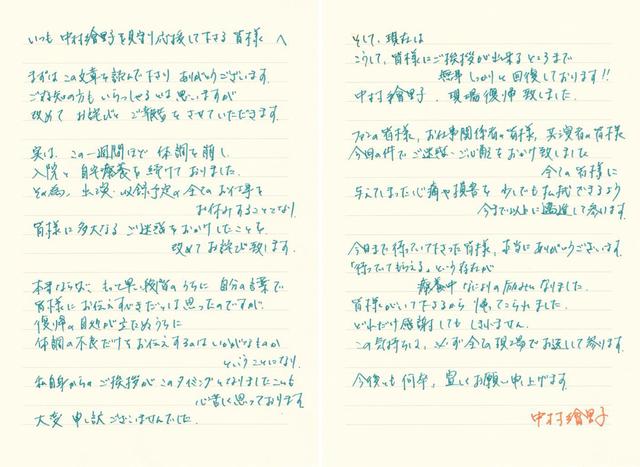 いつも 中村繪里子を見守り応援して下さる 皆様 へ
まずは この文章を読んで下さり ありがとうございます。
ご存知の方も いらっしゃるとは思いますが
改めて お詫びと ご報告を させていただきます。
実は、この一週間ほど 体調を崩し、
入院と自宅療養を続けておりました。
その為、出演・収録予定の全てのお仕事を
お休みすることとなり、
皆様に多大なる ご迷惑をおかけしたことを
改めてお詫び致します。
本来ならば、もっと早い段階のうちに 自分の言葉で
皆様にお伝えすべきだとは思ったのですが、
復帰の目処が立たぬうちに
体調の不良だけをお伝えするのは いかがなものか
ということになり、
私自身からの ご挨拶が このタイミングとなりましたことも
心苦しく思っております。
大変 申し訳ございませんでした。
そして、現在は
こうして、皆様にご挨拶が出来るところまで
無事 しっかりと 回復しております!!
中村繪里子、現場復帰致しました。
ファンの皆様、お仕事関係者の皆様、共演者の皆様
今回の件で ご迷惑・ご心配をおかけ致しました
全ての皆様に
与えてしまった心痛や損害を 少しでも払拭できるよう
今まで以上に邁進して参ります。
今日まで待っていて下さった皆様、本当にありがとうございます。
「待っていてもらえる」という存在が
療養中 なによりの励みになりました。
皆様がいて下さるから 帰ってこられました。
どれだけ感謝しても しきれません。
この気持ちは、必ず全ての現場でお返しして参ります。
今後も 何卒、宜しくお願い申し上げます。
中村繪里子